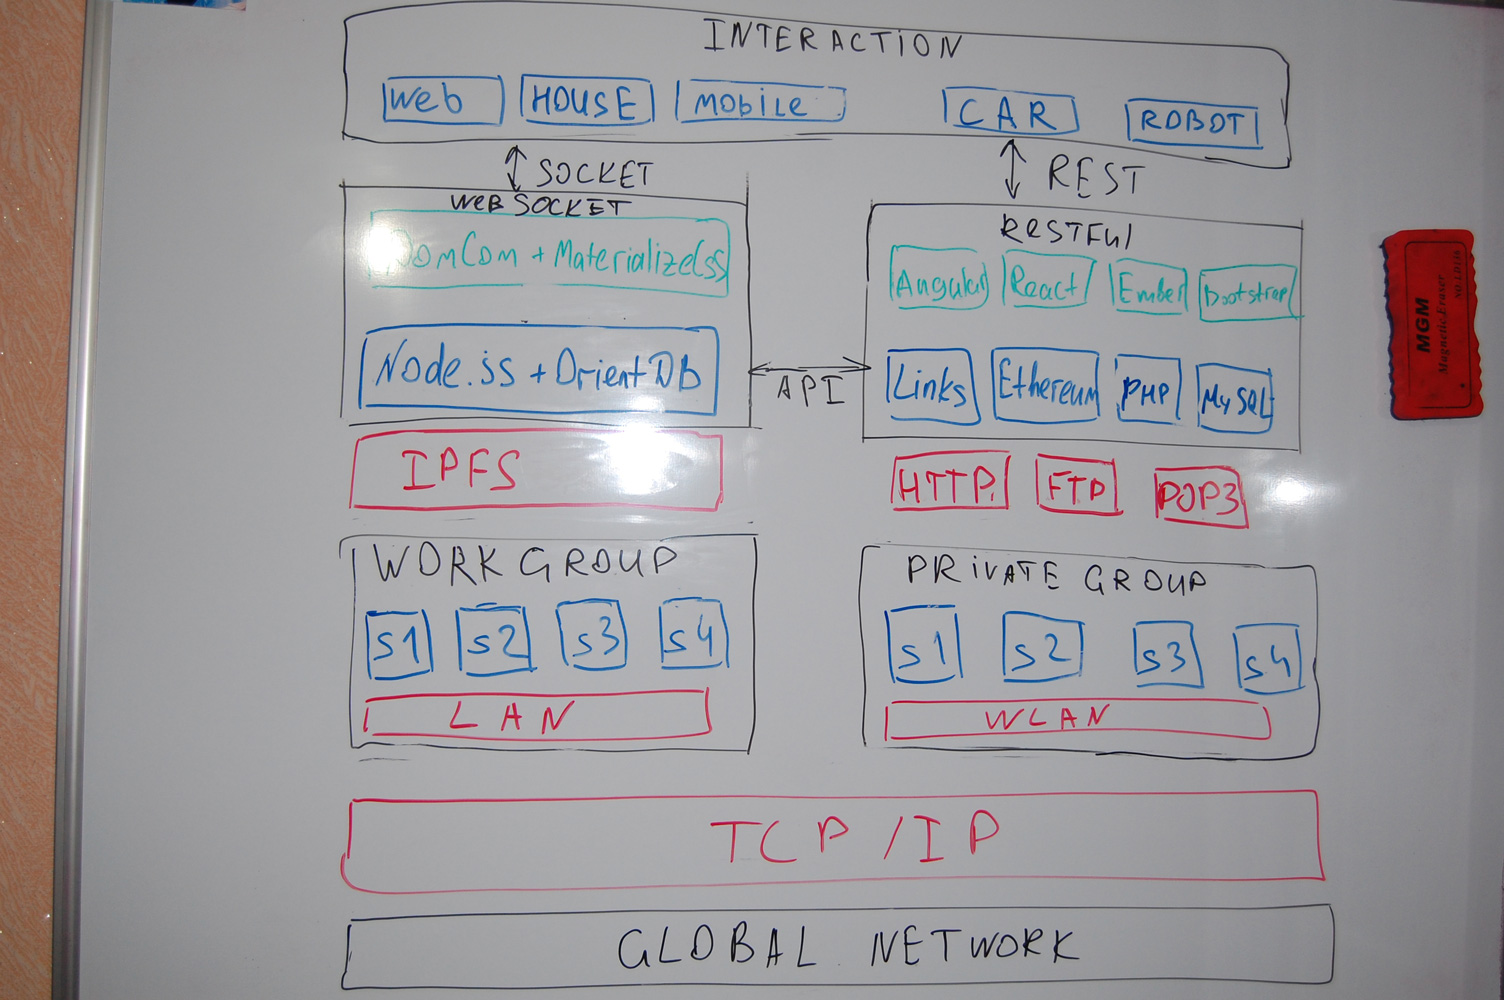 INTERACTION
Web HOUSE MObiLE CAR ROBOT
SOCKET REST
WEB SOCKET
DomCom + MaterializeCss
Node.js + OrientDB
API
RESTFul
Angular React Ember Bootstrap
Links Ethereum PHP MySQL
IPFS
HTTP FTP POP3
WORK GROUP
S1 S2 S3 S4
LAN
PRiVATE GROUP
S1 S2 S3 S4
WLAN
TCP/IP
GLOBAL NETWORK
MGM
Magnetic Eraser